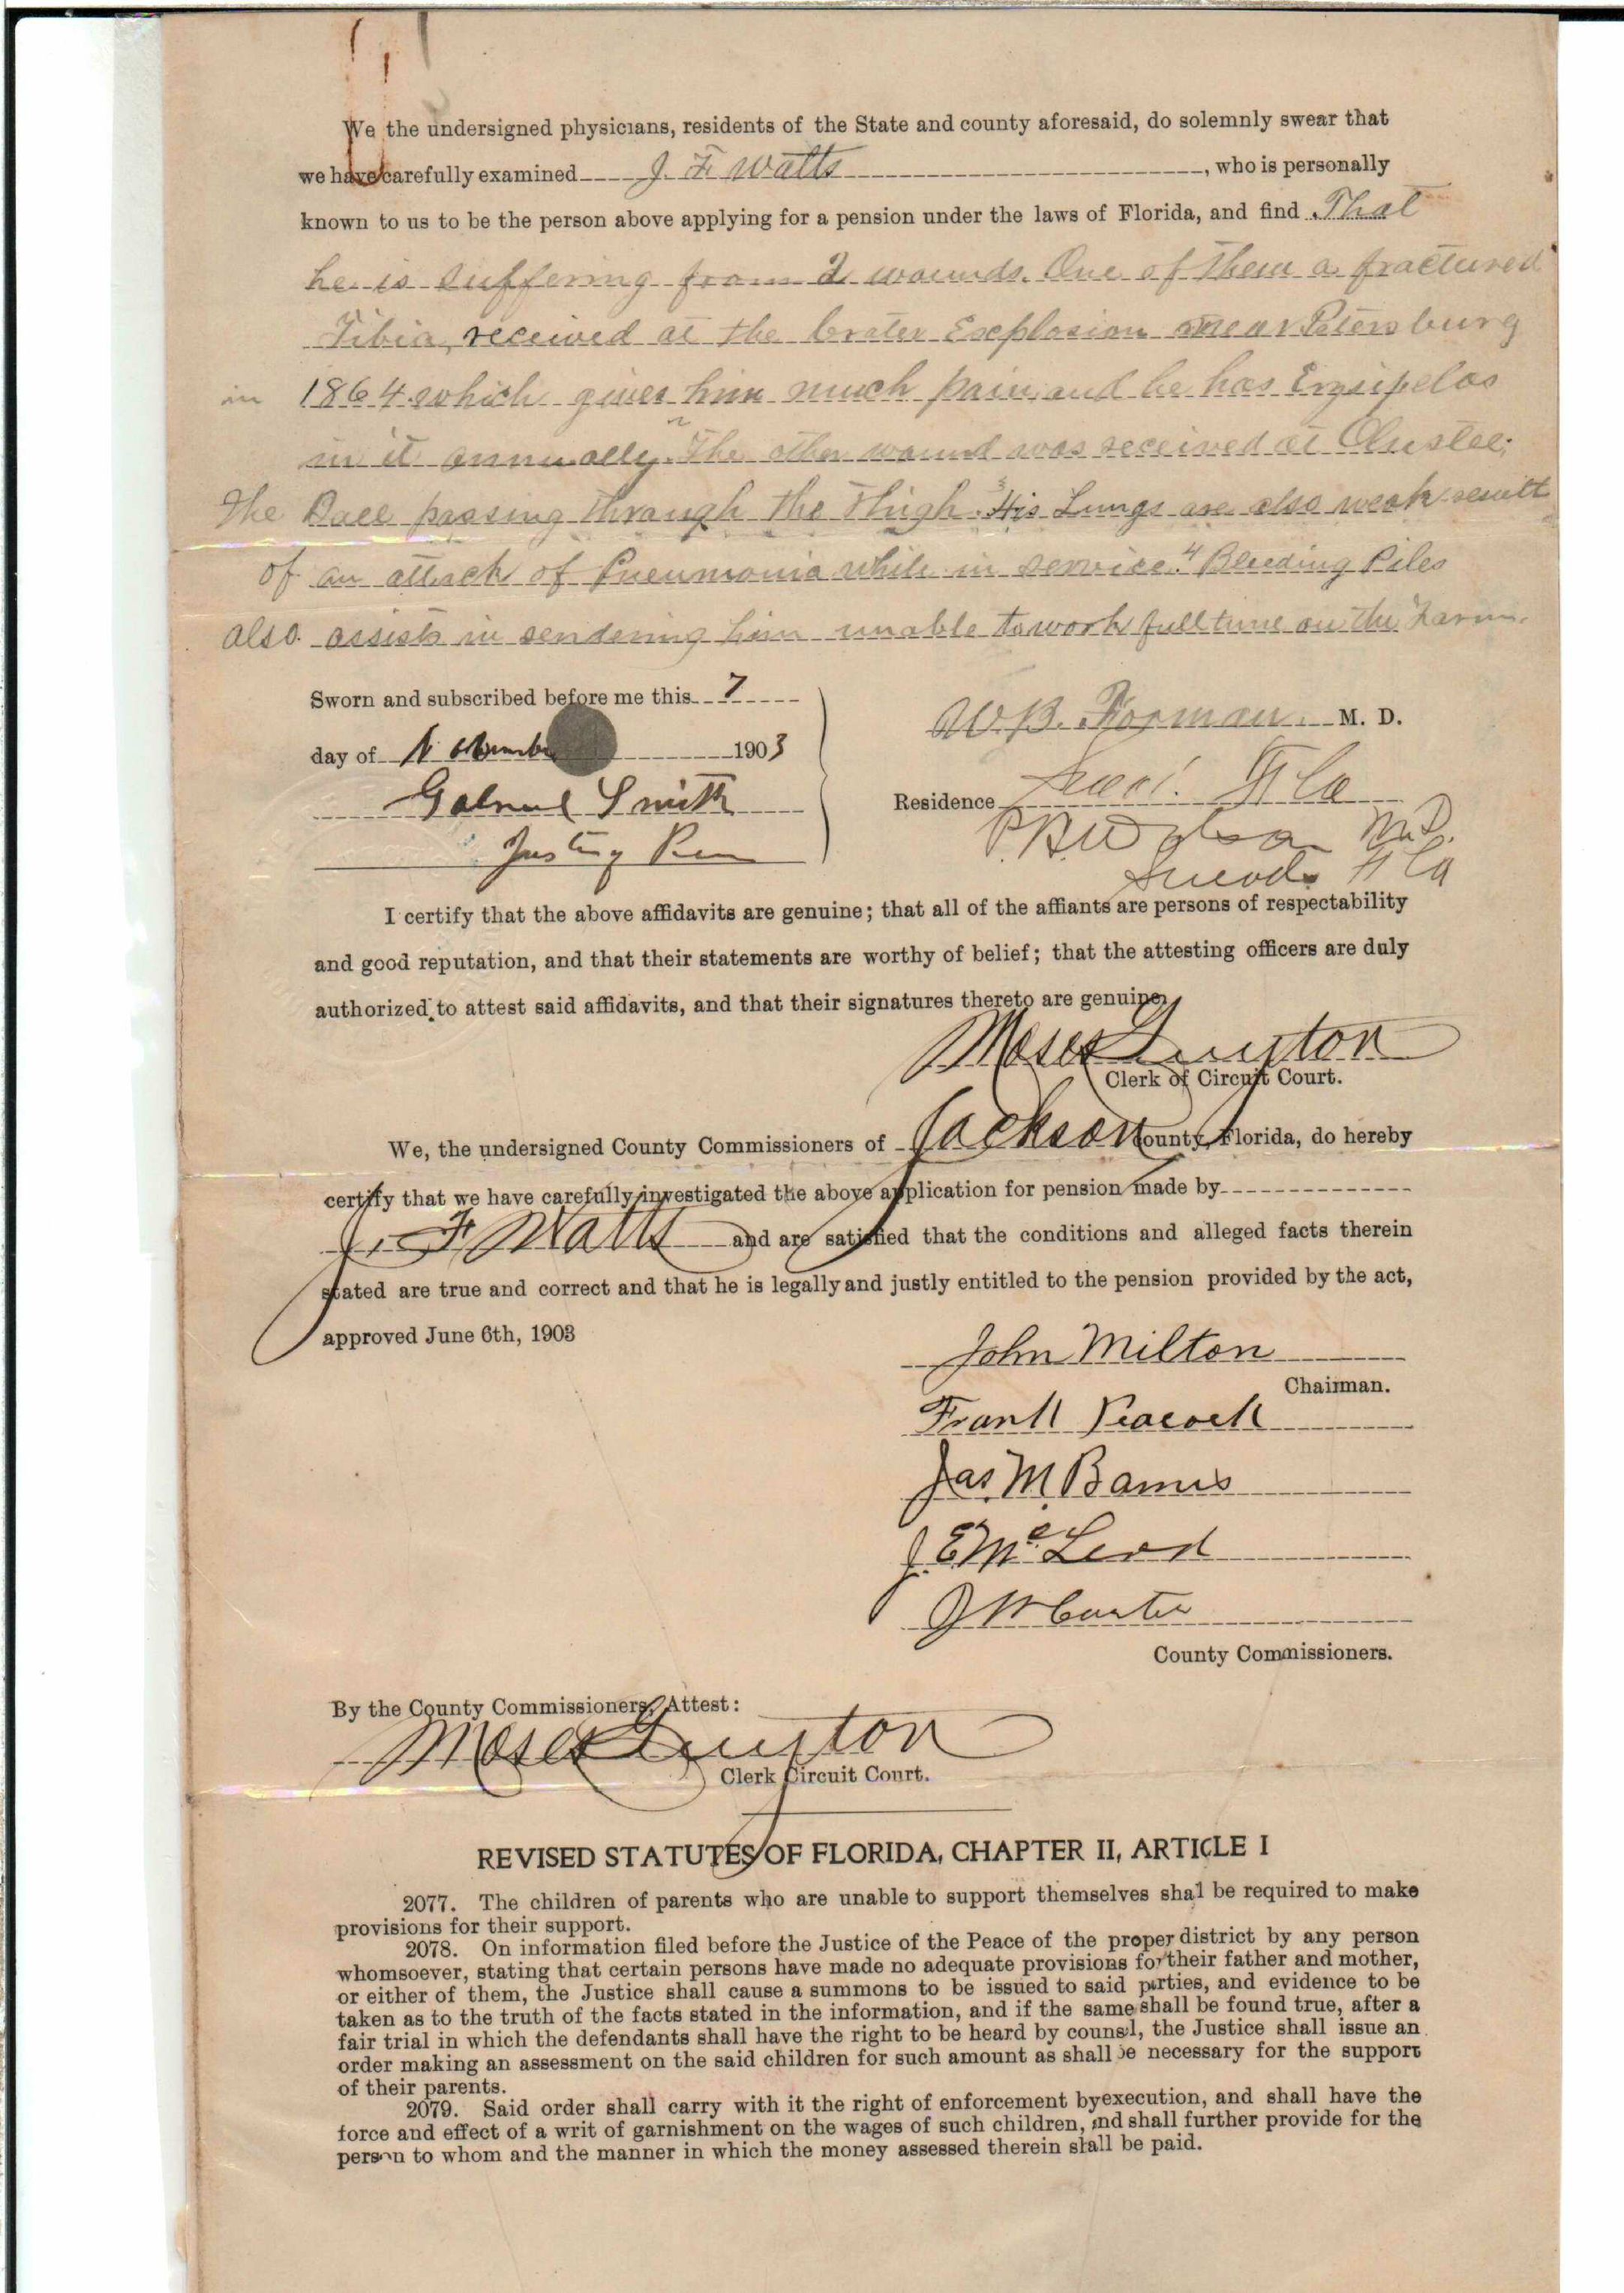 We the undersigned physicians, residents of the State and county aforesaid, do solemnly swear that
we have carefully examined J. F. Watts, who is personally
known to us to be the person above applying for a pension under the laws of Florida, and find That
he is suffering from 2 wounds. One of them a fractured
Tibia, received at the Crater Explosion near Petersburg
in 1864 which gives him much pain and he has Erysipelas
in it annually. The other wound was received at Olustee;
the Ball passing through the Thigh. 3 His Lungs are also weak result
of an attack of Pneumonia while in service. 4 Bleeding Piles
also assists in rendering him unable to work full time on the Farm.
Sworn and subscribed before me this 7
day of November 1903
Gabriel Smith
W. B. Forman M. D.
Residence Sneads Fla
M.D.
Sneads Fla
I certify that the above affidavits are genuine; that all of the affiants are persons of respectability
and good reputation, and that their statements are worthy of belief; that the attesting officers are duly
authorized to attest said affidavits, and that their signatures thereto are genuine.
Moses Guyton
Clerk of Circuit Court.
We, the undersigned County Commissioners of Jackson County, Florida, do hereby
certify that we have carefully investigated the above application for pension made by
J. F. Watts and are satisfied that the conditions and alleged facts therein
stated are true and correct and that he is legally and justly entitled to the pension provided by the act,
approved June 6th, 1903
John Milton
Chairman.
Frank Peacock
Jas. M. Barnes
J. E. McLeod
J W Carter
County Commissioners.
By the County Commissioners, Attest:
Moses Guyton
Clerk Circuit Court.
REVISED STATUTES OF FLORIDA, CHAPTER II, ARTICLE I
2077. The children of parents who are unable to support themselves shal be required to make
provisions for their support.
2078. On information filed before the Justice of the Peace of the proper district by any person
whomsoever, stating that certain persons have made no adequate provisions for their father and mother,
or either of them, the Justice shall cause a summons to be issued to said parties, and evidence to be
taken as to the truth of the facts stated in the information, and if the same shall be found true, after a
fair trial in which the defendants shall have the right to be heard by counsel, the Justice shall issue an
order making an assessment on the said children for such amount as shall be necessary for the support
of their parents.
2079. Said order shall carry with it the right of enforcement byexecution, and shall have the
force and effect of a writ of garnishment on the wages of such children, and shall further provide for the
person to whom and the manner in which the money assessed therein shall be paid.